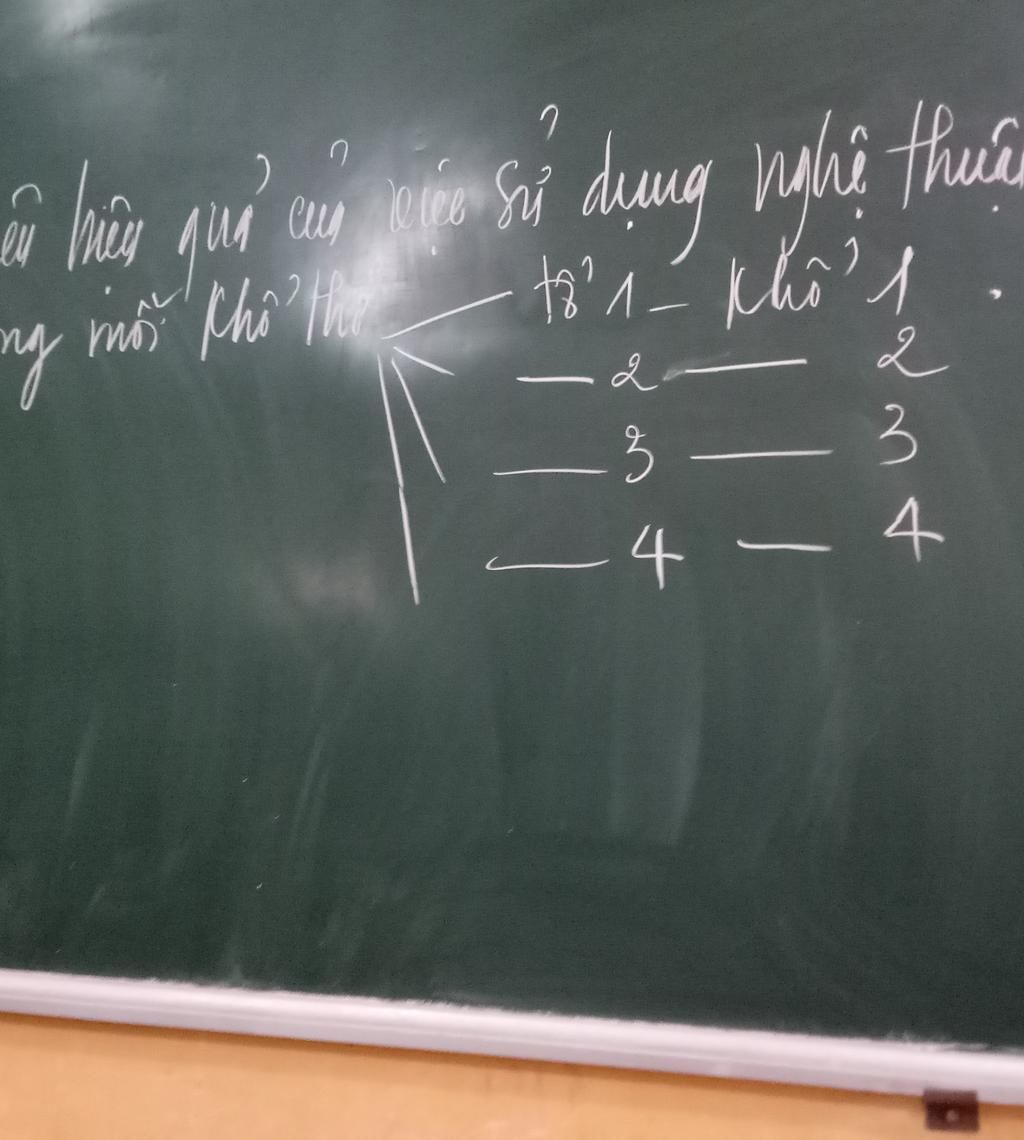 hiệu quả của việc sử dụng nghệ thuật
mỗi khổ thơ tổ 1 - khổ 1
— 2 — 2
— 3 — 3
— 4 — 4